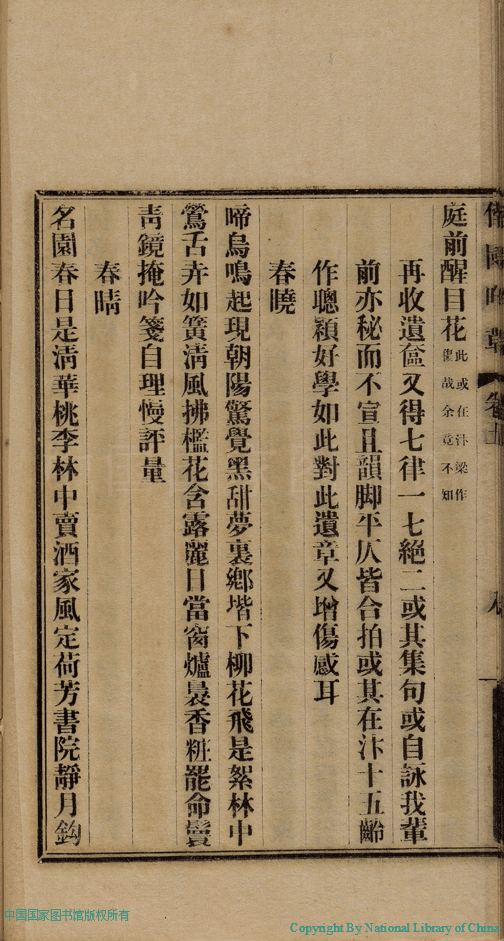 庭前醒目花此或在汴梁作儂哉余竟不知
再收遺奩又得七律一七絕二或其集句或自詠我輩
前亦秘而不宣且韻脚平仄皆合拍或其在汴十五齡
作聰穎好學如此對此遺章又增傷感耳
春曉
啼鳥鳴起現朝陽驚覺黑甜夢裏鄉堦下柳花飛是絮林中
鶯舌卉如簧淸風拂檻花含露麗日當窗爐裊香粧罷命鬟
靑鏡掩吟箋自理慢評量
春晴
名園春日是淸華桃李林中賣酒家風定荷芳書院靜月鈎
中国国家图书馆版权所有
Copyright By National Library of China